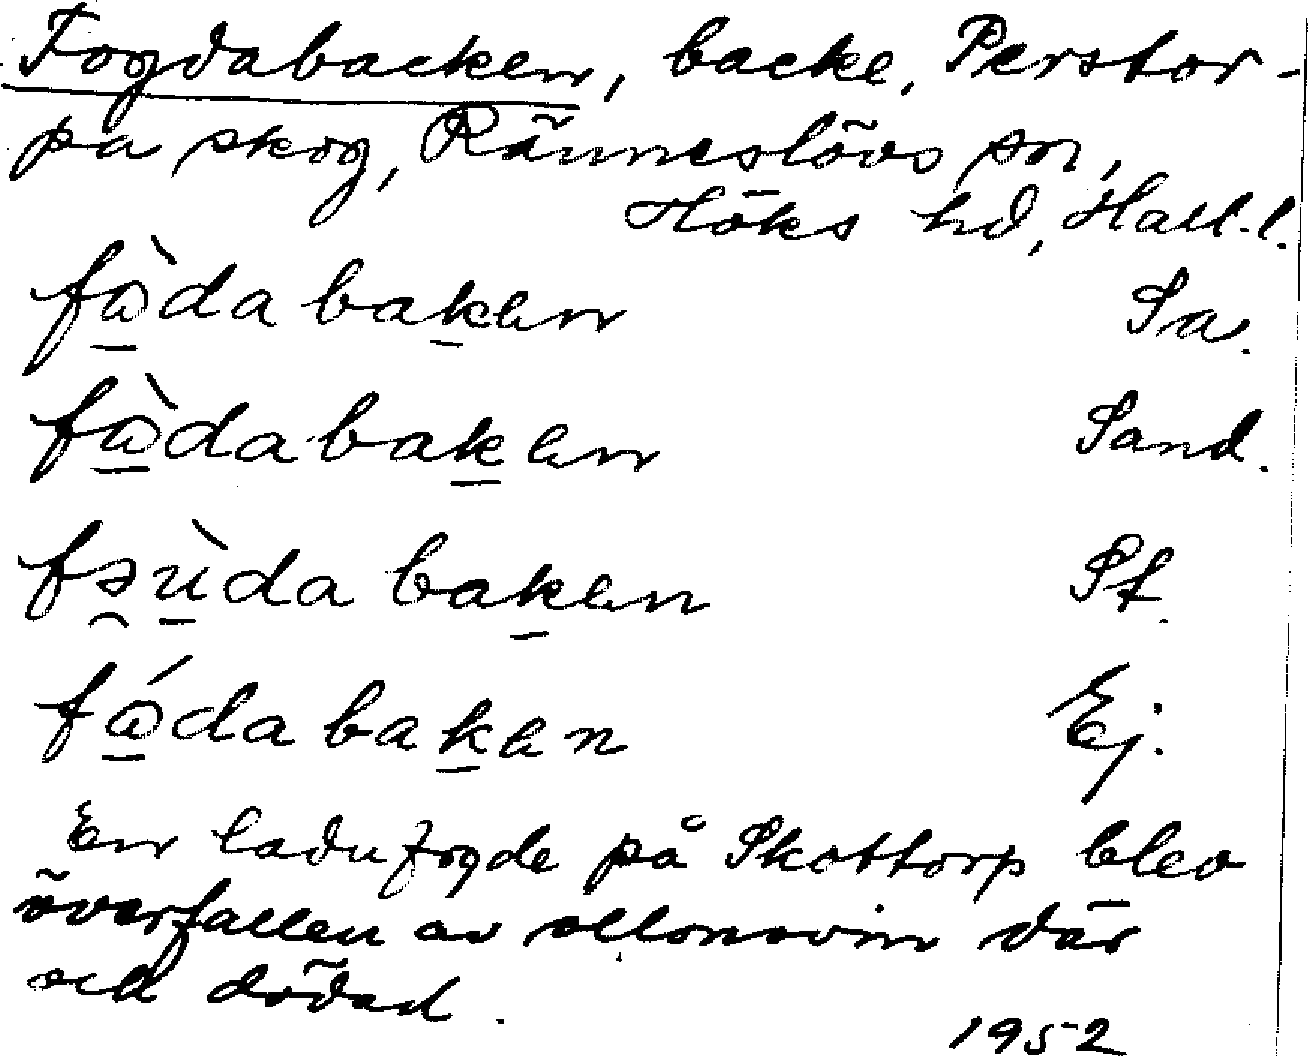 Fogdabacken, backe, Perstor-
pa skog, Ränneslövs sn,
Höks hd, Hall. l.
fàdabaken Sa.
fàdabaken Sand.
fəùdabaken St.
fádabaken Ej.
En ladufogde på Skottorp blev
överfallen av ollonsvin där
och dödad.
1952